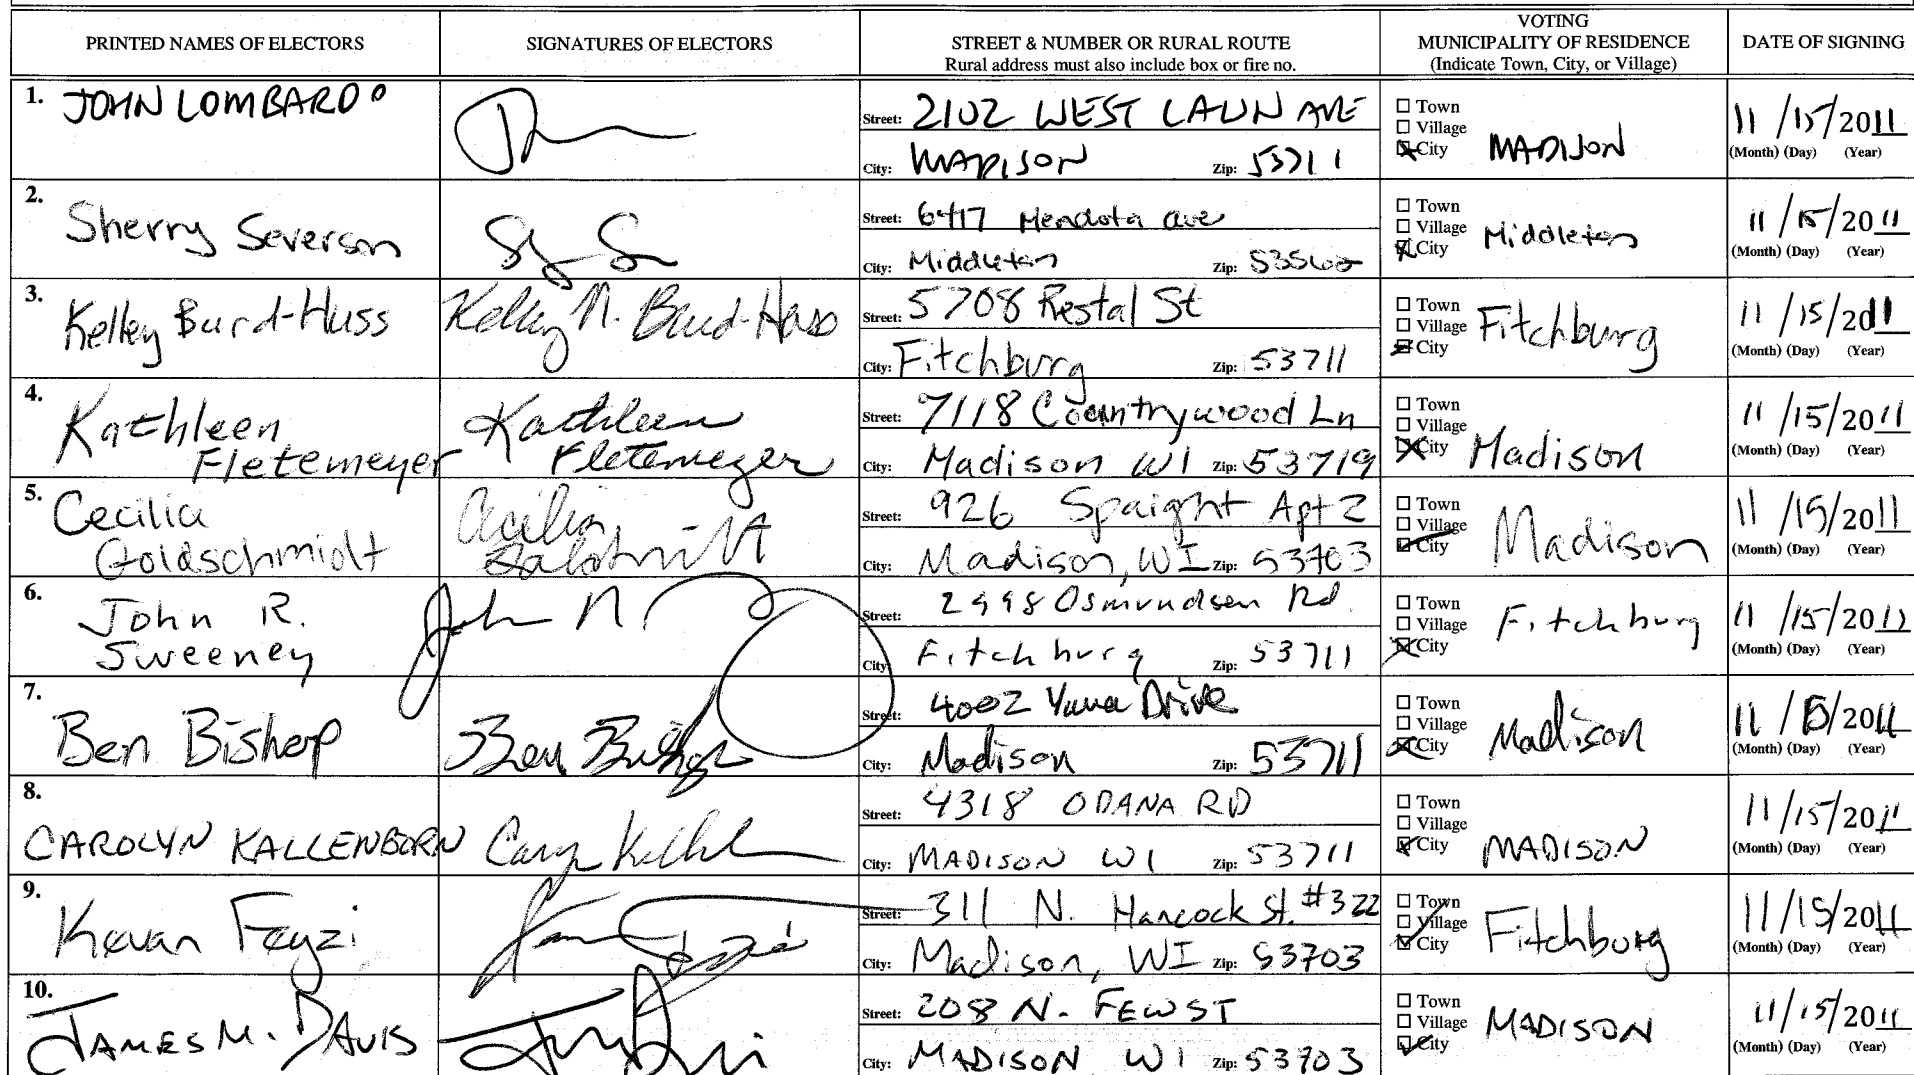 PRINTED NAMES OF ELECTORS
SIGNATURES OF ELECTORS
STREET & NUMBER OR RURAL ROUTE
Rural address must also include box or fire no.
VOTING
MUNICIPALITY OF RESIDENCE
(Indicate Town, City, or Village)
DATE OF SIGNING
1. JOHN LOMBARDO
Street: 2102 WEST LAWN AVE
City: MADISON Zip: 53711
Town
Village
City MADISON
11/15/2011
(Month) (Day) (Year)
2. Sherry Severson
Street: 6417 Mendota ave
City: Middleton Zip: 53562
Town
Village
City Middleton
11/15/2011
(Month) (Day) (Year)
3. Kelley Burd-Huss
Kelley N. Burd-Huss
Street: 5708 Restal St
City: Fitchburg Zip: 53711
Town
Village
City Fitchburg
11/15/2011
(Month) (Day) (Year)
4. Kathleen
Fletemeyer
Kathleen
Fletemeyer
Street: 7118 Countrywood Ln
City: Madison WI Zip: 53719
Town
Village
City Madison
11/15/2011
(Month) (Day) (Year)
5. Cecilia
Goldschmidt
Cecilia
Goldschmidt
Street: 926 Spaight Apt 2
City: Madison, WI Zip: 53703
Town
Village
City Madison
11/15/2011
(Month) (Day) (Year)
6. John R.
Sweeney
John R
Street: 2998 Osmundsen Rd.
City: Fitchburg Zip: 53711
Town
Village
City Fitchburg
11/15/2011
(Month) (Day) (Year)
7. Ben Bishop
Ben Bishop
Street: 4002 Yuma Drive
City: Madison Zip: 53711
Town
Village
City Madison
11/15/2011
(Month) (Day) (Year)
8. CAROLYN KALLENBORN
Street: 4318 ODANA RD
City: MADISON WI Zip: 53711
Town
Village
City MADISON
11/15/2011
(Month) (Day) (Year)
9. Kevan Feyzi
Street: 311 N. Hancock St. #322
City: Madison, WI Zip: 53703
Town
Village
City Fitchburg
11/15/2011
(Month) (Day) (Year)
10. JAMES M. DAVIS
Street: 208 N. FEW ST
City: MADISON WI Zip: 53703
Town
Village
City MADISON
11/15/2011
(Month) (Day) (Year)